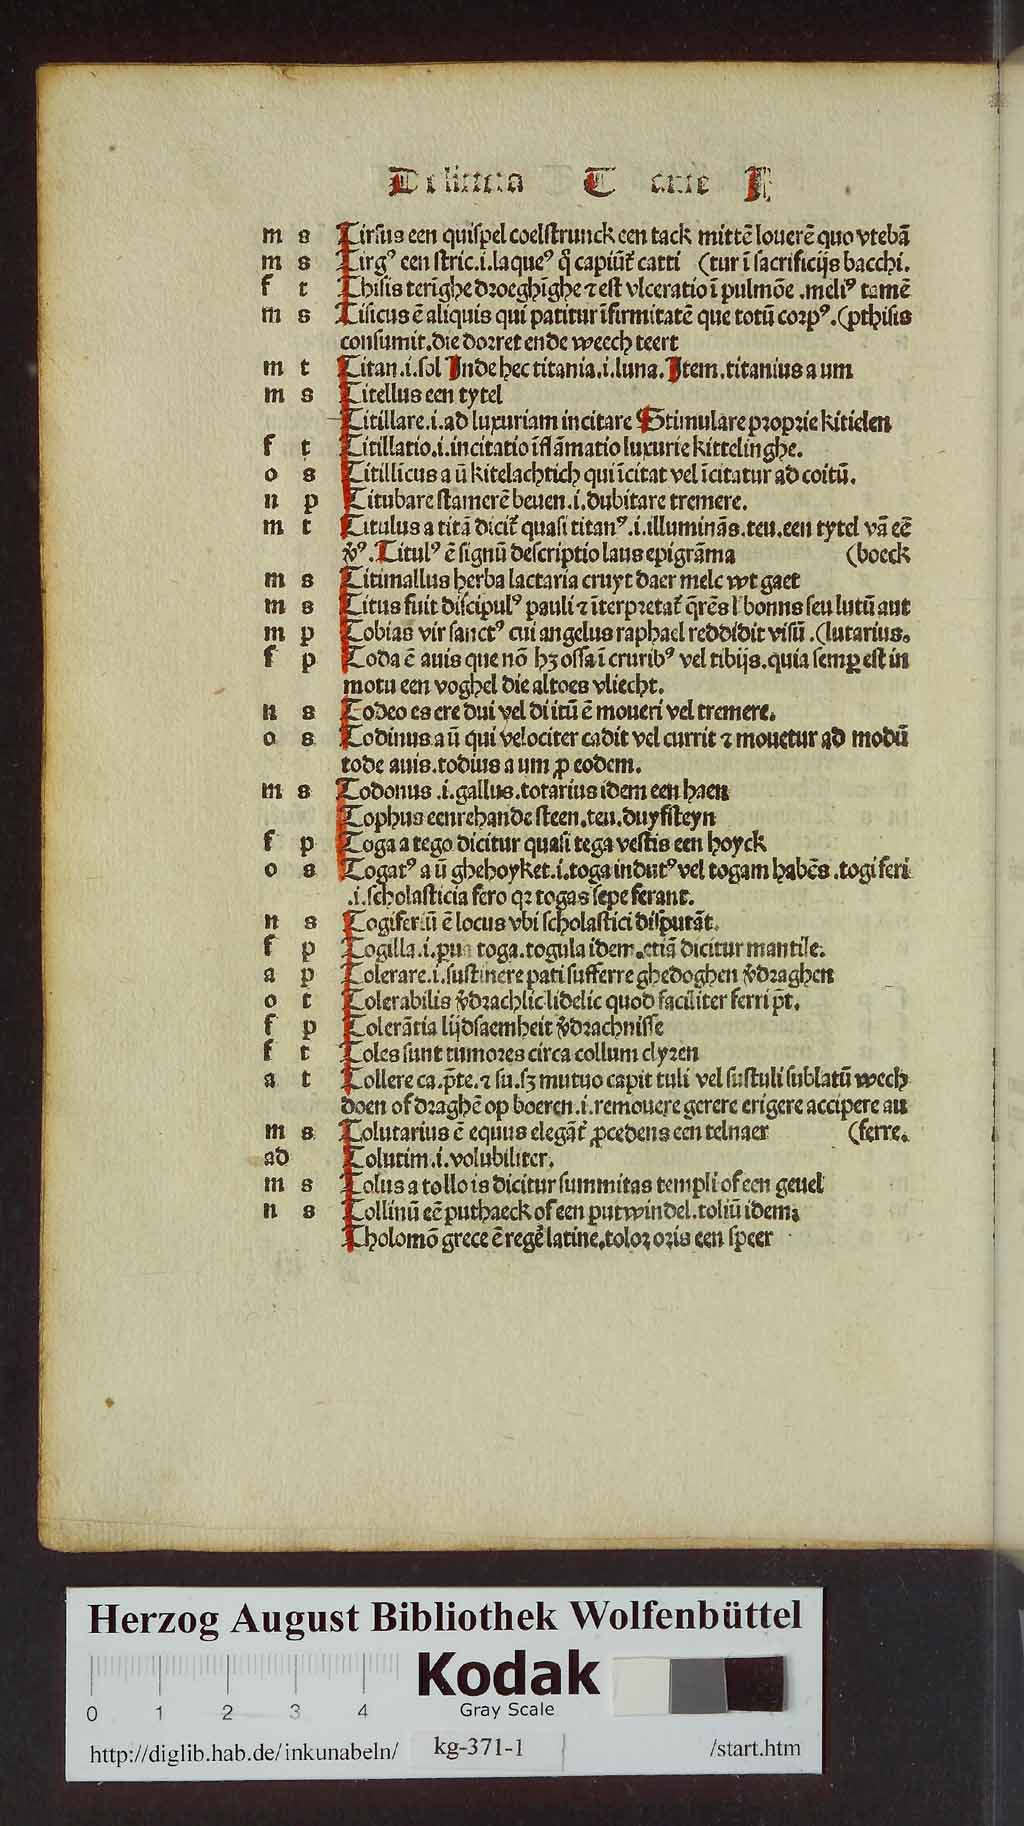 De littera T ante I
m s Tirsus een quispel coelstrunck een tack mittē louerē quo vtebā
m s Tirgꝰ een stric.i.laqueꝰ q̄ capiūt᷑ catti (tur ī sacrificijs bacchi.
f t Thisis terīghe droeghīghe ⁊ est vlceratio ī pulmōe .meliꝰ tamē
m s Tisicus ē aliquis qui patitur īfirmitatē que totū corpꝰ.(pthisis
consumit.die dorret ende weech teert
m t Titan.i.sol Inde hec titania.i.luna.Item.titanius a um
m s Titellus een tytel
Titillare.i.ad luxuriam incitare Stimulare proprie kitielen
f t Titillatio.i.incitatio īflāmatio luxurie kittelinghe.
o s Titillīcus a ū kitelachtich qui īcitat vel īcitatur ad coitū.
n p Titubare stamerē beuen.i.dubitare tremere.
m t Titulus a titā dicit᷑ quasi titanꝰ.i.illuminās.teu.een tytel vā eē
v̄ꝰ.Titulꝰ ē signū descriptio laus epigrāma (boeck
m s Titimallus herba lactaria cruyt daer melc wt gaet
m s Titus fuit discipulꝰ pauli ⁊ īterpretat᷑ q̄rēs l bonns seu lutū aut
m p Tobias vir sanctꝰ cui angelus raphael reddidit visū .(lutarius.
f p Toda ē auis que nō hꝫ ossa ī cruribꝰ vel tibijs.quia semꝑ est in
motu een voghel die altoes vliecht.
n s Todeo es ere dui vel di itū ē moueri vel tremere.
o s Todinus a ū qui velociter cadit vel currit ⁊ mouetur ad modū
tode auis.todius a um ꝓ eodem.
m s Todonus .i.gallus.totarius idem een haen
Tophus eenrehande steen.teu.duyfsteyn
f p Toga a tego dicitur quasi tega vestis een hoyck
o s Togatꝰ a ū ghehoyket.i.toga indutꝰ vel togam habēs .togiferi
.i.scholasticia fero qꝛ togas sepe ferant.
n s Togiferiū ē locus vbi scholastici disputāt.
f p Togilla.i.ꝑua toga.togula idem.etiā dicitur mantile.
a p Tolerare.i.sustinere pati sufferre ghedoghen v̄draghen
o t Tolerabilis v̄drachlic lidelic quod faciliter ferri pt.
f p Tolerātia lijdsaemheit v̄drachnisse
f t Toles sunt tumores circa collum clyren
a t Tollere ca.p̄te.⁊ su.sꝫ mutuo capit tuli vel sustuli sublatū wech
doen of draghē op boeren.i.remouere gerere erigere accipere au
m s Tolutarius ē equus elegāt᷑ ꝓcedens een telnaer (ferre.
ad Tolutim.i.volubiliter.
m s Tolus a tollo is dicitur summitas templi of een geuel
n s Tollinū eē puthaeck of een putwindel.toliū idem;
Tholomō grece ē regē latine.tolor oris een speer
Herzog August Bibliothek Wolfenbüttel
Kodak
Gray Scale
0 1 2 3 4
http://diglib.hab.de/inkunabeln/ kg-371-1 /start.htm